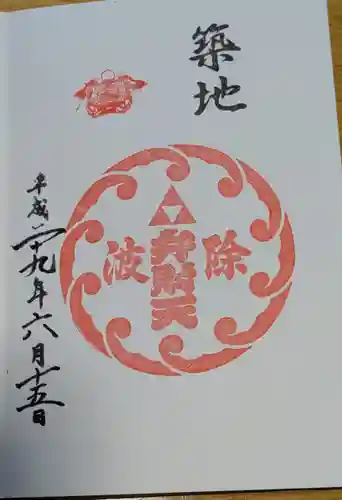 築地
除波
弁財天
平成二十九年六月十五日